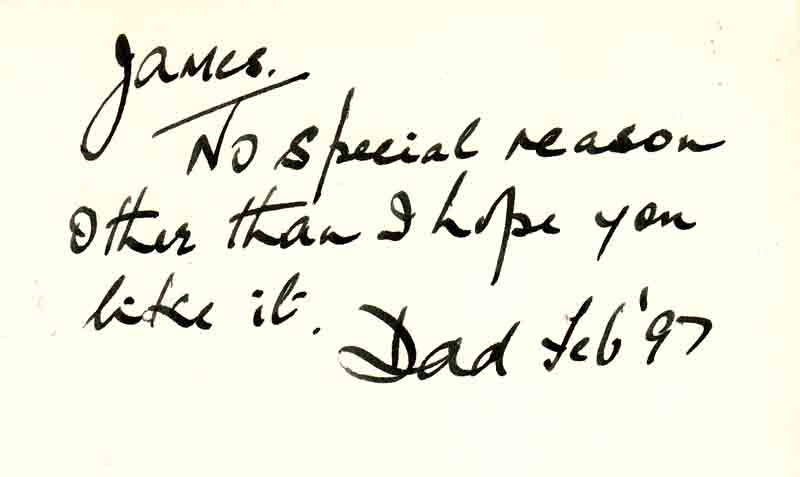 James.
No special reason
other than I hope you
like it.
Dad Feb '97